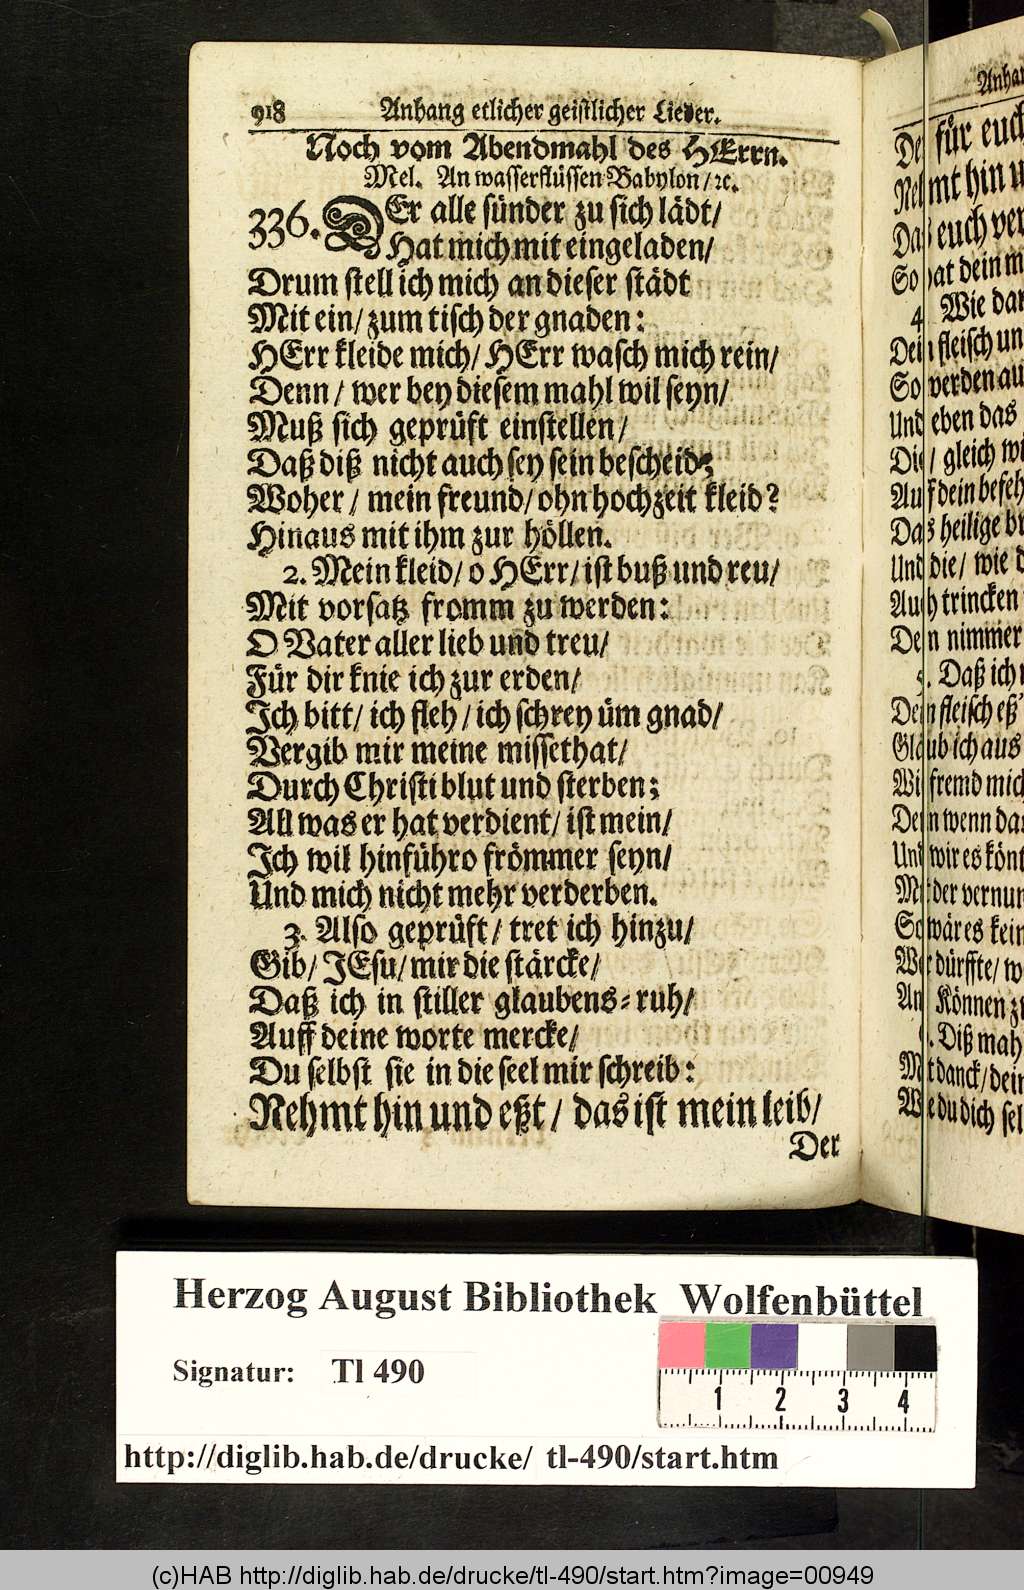 918 Anhang etlicher geistlicher Lieder.
Noch vom Abendmahl des HErrn.
Mel. An wasserflüssen Babylon/ ꝛc.
336. DEr alle sünder zu sich lädt/
Hat mich mit eingeladen/
Drum stell ich mich an dieser städt
Mit ein/ zum tisch der gnaden:
HErr kleide mich/ HErr wasch mich rein/
Denn/ wer bey diesem mahl wil seyn/
Muß sich geprüft einstellen/
Daß diß nicht auch sey sein bescheid:
Woher/ mein freund/ ohn hochzeit kleid?
Hinaus mit ihm zur höllen.
2. Mein kleid/ o HErr/ ist buß und reu/
Mit vorsatz fromm zu werden:
O Vater aller lieb und treu/
Für dir knie ich zur erden/
Ich bitt/ ich fleh/ ich schrey üm gnad/
Vergib mir meine missethat/
Durch Christi blut und sterben;
All was er hat verdient/ ist mein/
Ich wil hinführo frömmer seyn/
Und mich nicht mehr verderben.
3. Also geprüft/ tret ich hinzu/
Gib/ JEsu/ mir die stärcke/
Daß ich in stiller glaubens-ruh/
Auff deine worte mercke/
Du selbst sie in die seel mir schreib:
Nehmt hin und eßt/ das ist mein leib/
Der
Anha
für euch
mt hin u
euch ver
So hat dein m
4. Wie dan
Dein fleisch un
So werden au
Und eben das
Die/ gleich wi
Auf dein befeh
Das heilige br
Und die/ wie d
Auch trincken
Denn nimmer
5. Daß ich
Dein fleisch eß
Gläub ich aus
Wie fremd mich
Denn wenn da
Und wir es könt
Mit der vernun
So wär es kein
Wer dürffte/ w
Können zu
Diß mah
Mit danck/ dein
Wie du dich sel
Herzog August Bibliothek Wolfenbüttel
Signatur: Tl 490
1 2 3 4
http://diglib.hab.de/drucke/ tl-490/start.htm
(c)HAB http://diglib.hab.de/drucke/tl-490/start.htm?image=00949